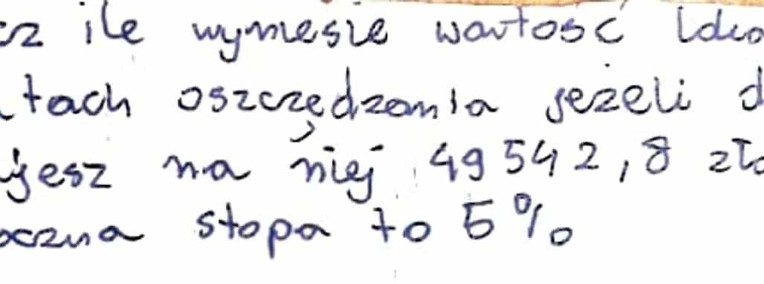 cz ile wyniesie wartość loka
tach oszczędzania jeżeli d
ujesz na niej 49542,8 zło
oczna stopa to 5%